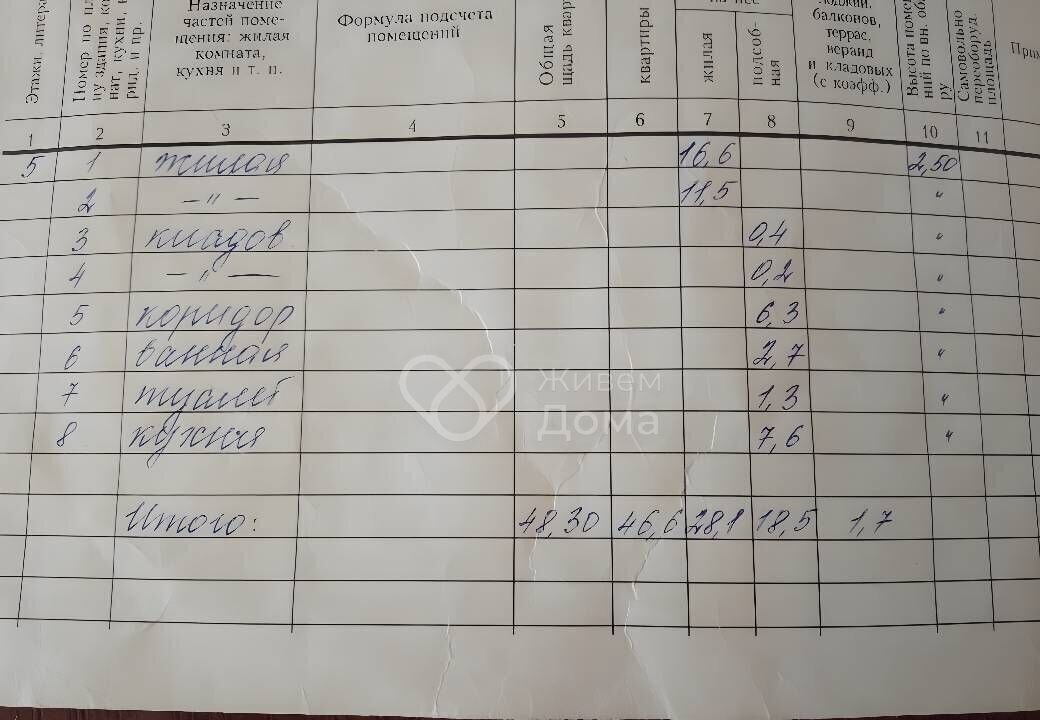 Этажи, литера
Номер по пл
ну здания, ко
нат, кухни,
рид. и пр.
Назначение
частей поме-
щения: жилая
комната,
кухня и т. п.
Формула подсчета
помещений
Общая
щадь кварт
квартиры
жилая
подсоб-
ная
лоджий,
балконов,
террас,
веранд
и кладовых
(с коэфф.)
Высота помещ
ний по вн. об
ру
Самовольно
переоборуд.
площадь
Прим
1 2 3 4 5 6 7 8 9 10 11
5 1 жилая 16,6 2,50
2 —〃— 11,5 〃
3 кладов 0,4 〃
4 —〃— 0,2 〃
5 коридор 6,3 〃
6 ванная 2,7 〃
7 туалет 1,3 〃
8 кухня 7,6 〃
Живем
Дома
Итого: 48,30 46,6 28,1 18,5 1,7